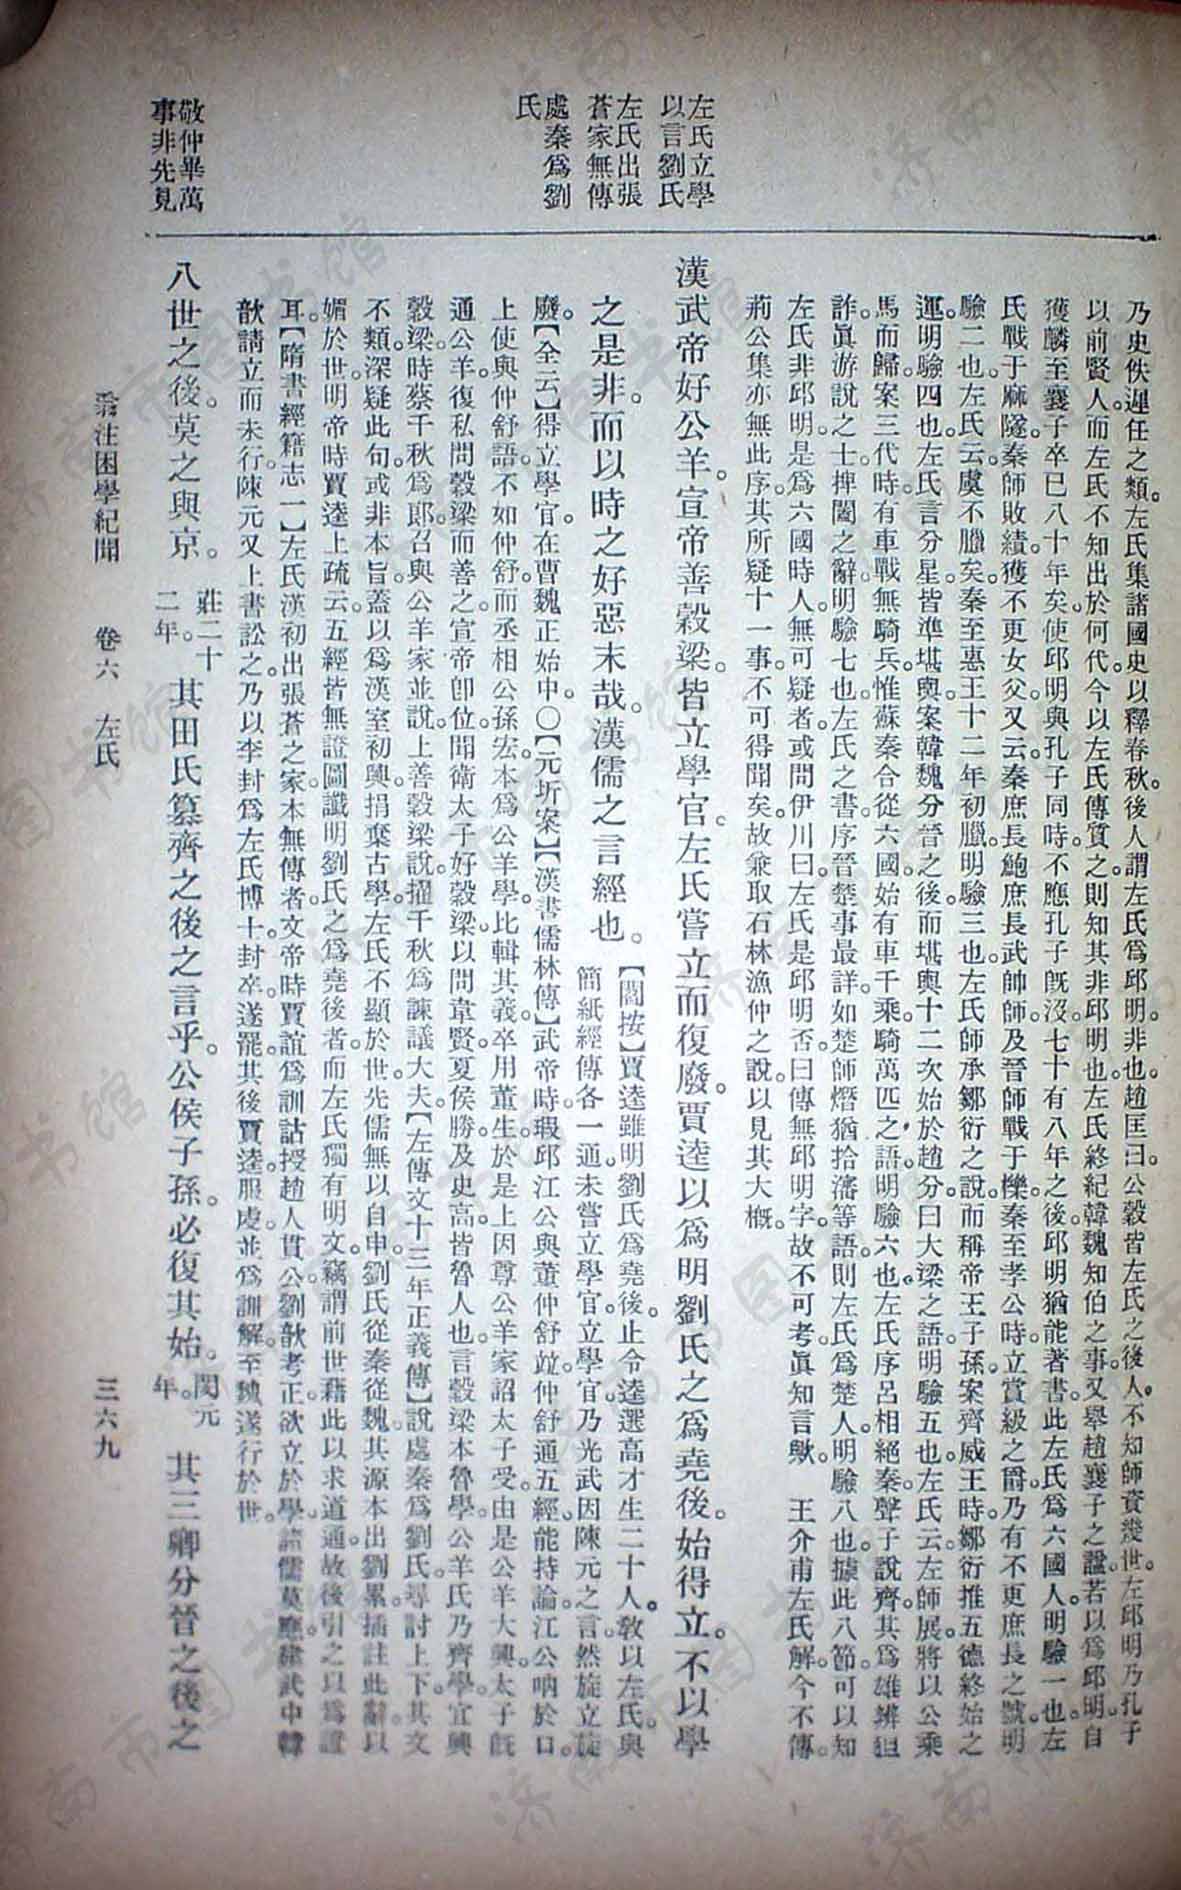 左氏立學
以言劉氏
左氏出張
蒼家無傳
處秦爲劉
氏
敬仲畢萬
事非先見
乃史佚遲任之類。左氏集諸國史以釋春秋。後人謂左氏爲邱明。非也。趙匡曰。公穀皆左氏之後人。不知師資幾世。左邱明乃孔子
以前賢人。而左氏不知出於何代。今以左氏傳質之。則知其非邱明也。左氏終紀韓魏知伯之事。又舉趙襄子之諡。若以爲邱明。自
獲麟至襄子卒。已八十年矣。使邱明與孔子同時。不應孔子旣沒七十有八年之後。邱明猶能著書。此左氏爲六國人。明驗一也。左
氏戰于麻隧。秦師敗績。獲不更女父。又云。秦庶長鮑庶長武帥師。及晉師戰于櫟。秦至孝公時。立賞級之爵。乃有不更庶長之號。明
驗二也。左氏云。虞不臘矣。秦至惠王十二年初臘。明驗三也。左氏師承鄒衍之說。而稱帝王子孫。案齊威王時。鄒衍推五德終始之
運。明驗四也。左氏言分星。皆準堪輿。案韓魏分晉之後。而堪輿十二次始於趙分曰大梁之語。明驗五也。左氏云。左師展將以公乘
馬而歸。案三代時有車戰。無騎兵。惟蘇秦合從六國。始有車千乘。騎萬匹之語。明驗六也。左氏序呂相絕秦。聲子說齊。其爲雄辨狙
詐。眞游說之士捭闔之辭。明驗七也。左氏之書。序晉楚事最詳。如楚師熸猶拾瀋等語。則左氏爲楚人。明驗八也。據此八節。可以知
左氏非邱明。是爲六國時人。無可疑者。或問伊川曰。左氏是邱明否。曰。傳無邱明字。故不可考。眞知言歟。　王介甫左氏解。今不傳。
荊公集亦無此序。其所疑十一事。不可得聞矣。故兼取石林漁仲之說。以見其大概。
漢武帝好公羊。宣帝善穀梁。皆立學官。左氏嘗立而復廢。賈逵以爲明劉氏之爲堯後。始得立。不以學
之是非。而以時之好惡。末哉。漢儒之言經也。
【閻按】賈逵雖明劉氏爲堯後。止令逵選高才生二十人。敎以左氏。與
簡紙經傳各一通。未嘗立學官。立學官。乃光武因陳元之言。然旋立旋
廢。【全云】得立學官。在曹魏正始中。○【元圻案】【漢書儒林傳】武帝時。瑕邱江公與董仲舒並。仲舒通五經。能持論。江公吶於口。
上使與仲舒語。不如仲舒。而丞相公孫宏。本爲公羊學。比輯其義。卒用董生。於是上因尊公羊家。詔太子受。由是公羊大興。太子旣
通公羊。復私問穀梁而善之。宣帝卽位。聞衛太子好穀梁。以問韋賢。夏侯勝。及史高。皆魯人也。言穀梁本魯學。公羊氏乃齊學。宜興
穀梁。時蔡千秋爲郎。召與公羊家並說。上善穀梁說。擢千秋爲諫議大夫。【左傳文十三年正義傳】說處秦爲劉氏。尋討上下。其文
不類。深疑此句。或非本旨。蓋以爲漢室初興。捐棄古學。左氏不顯於世。先儒無以自申。劉氏從秦從魏。其源本出劉累。插註此辭。以
媚於世。明帝時。賈逵上疏云。五經皆無證圖讖明劉氏之爲堯後者。而左氏獨有明文。竊謂前世藉此以求道通。故後引之以爲證
耳。【隋書經籍志一】左氏漢初出張蒼之家。本無傳者。文帝時賈誼爲訓詁。授趙人貫公。劉歆考正。欲立於學。諸儒莫應。建武中。韓
歆請立而未行。陳元又上書訟之。乃以李封爲左氏博士。封卒。遂罷。其後賈逵。服虔並爲訓解。至魏遂行於世。
八世之後。莫之與京。
莊二十
二年。
其田氏簒齊之後之言乎。公侯子孫。必復其始。
閔元
年。
其三卿分晉之後之
翁注困學紀聞　卷六　左氏　三六九